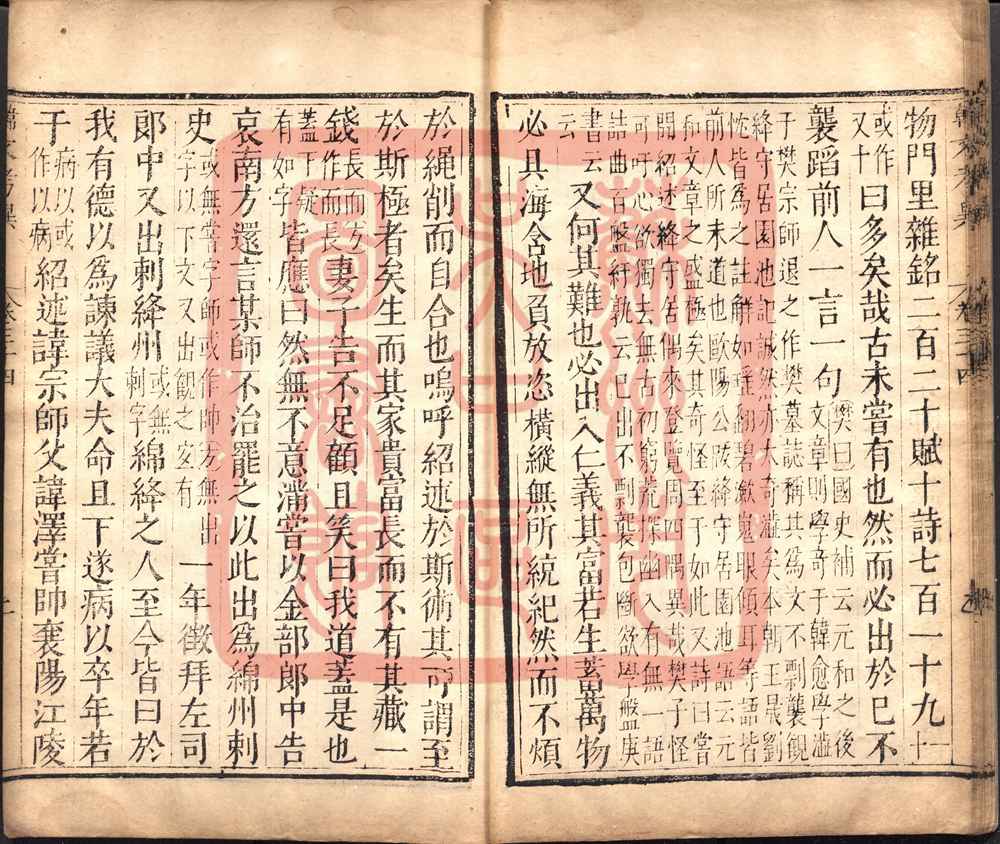 物門里雜銘二百二十賦十詩七百一十九十一
或作又十曰多矣哉古未嘗有也然而必出於己不
襲蹈前人一言一句樊曰國史補云元和之後文章則學奇于韓愈學澁
于樊宗師退之作樊墓誌稱其為文不剽襲觀
絳守居園池記誠然亦太奇澁矣本朝王晟劉
忱皆為之註解如瑶翻碧瀲嵬眼傾耳等語皆
前人所未道也歐陽公跋絳守居園池語云元
和文章之盛極矣其奇怪至于如此又詩曰嘗
聞紹述絳守居偶來登覽周四隅異哉樊子怪
可吁心欲獨去無古初窮荒探幽入有無一語
詰曲百盤紆孰云己出不剽襲包斷欲學盤庚
書云云又何其難也必出入仁義其富若生蓄萬物
必具海含地負放恣橫縱無所統紀然而不煩
於繩削而自合也嗚呼紹述於斯術其可謂至
於斯極者矣生而其家貴富長而不有其藏一
錢長而方作而長妻子告不足顧且笑曰我道蓋是也
蓋下疑有如字皆應曰然無不意滿嘗以金部郎中告
哀南方還言某師不治罷之以此出為綿州刺
史或無嘗字師或作帥方無出字以下文又出觀之宜有一年徵拜左司
郎中又出刺絳州或無刺字綿絳之人至今皆曰於
我有德以為諫議大夫命且下遂病以卒年若
干病以或作以病紹述諱宗師父諱澤嘗帥襄陽江陵